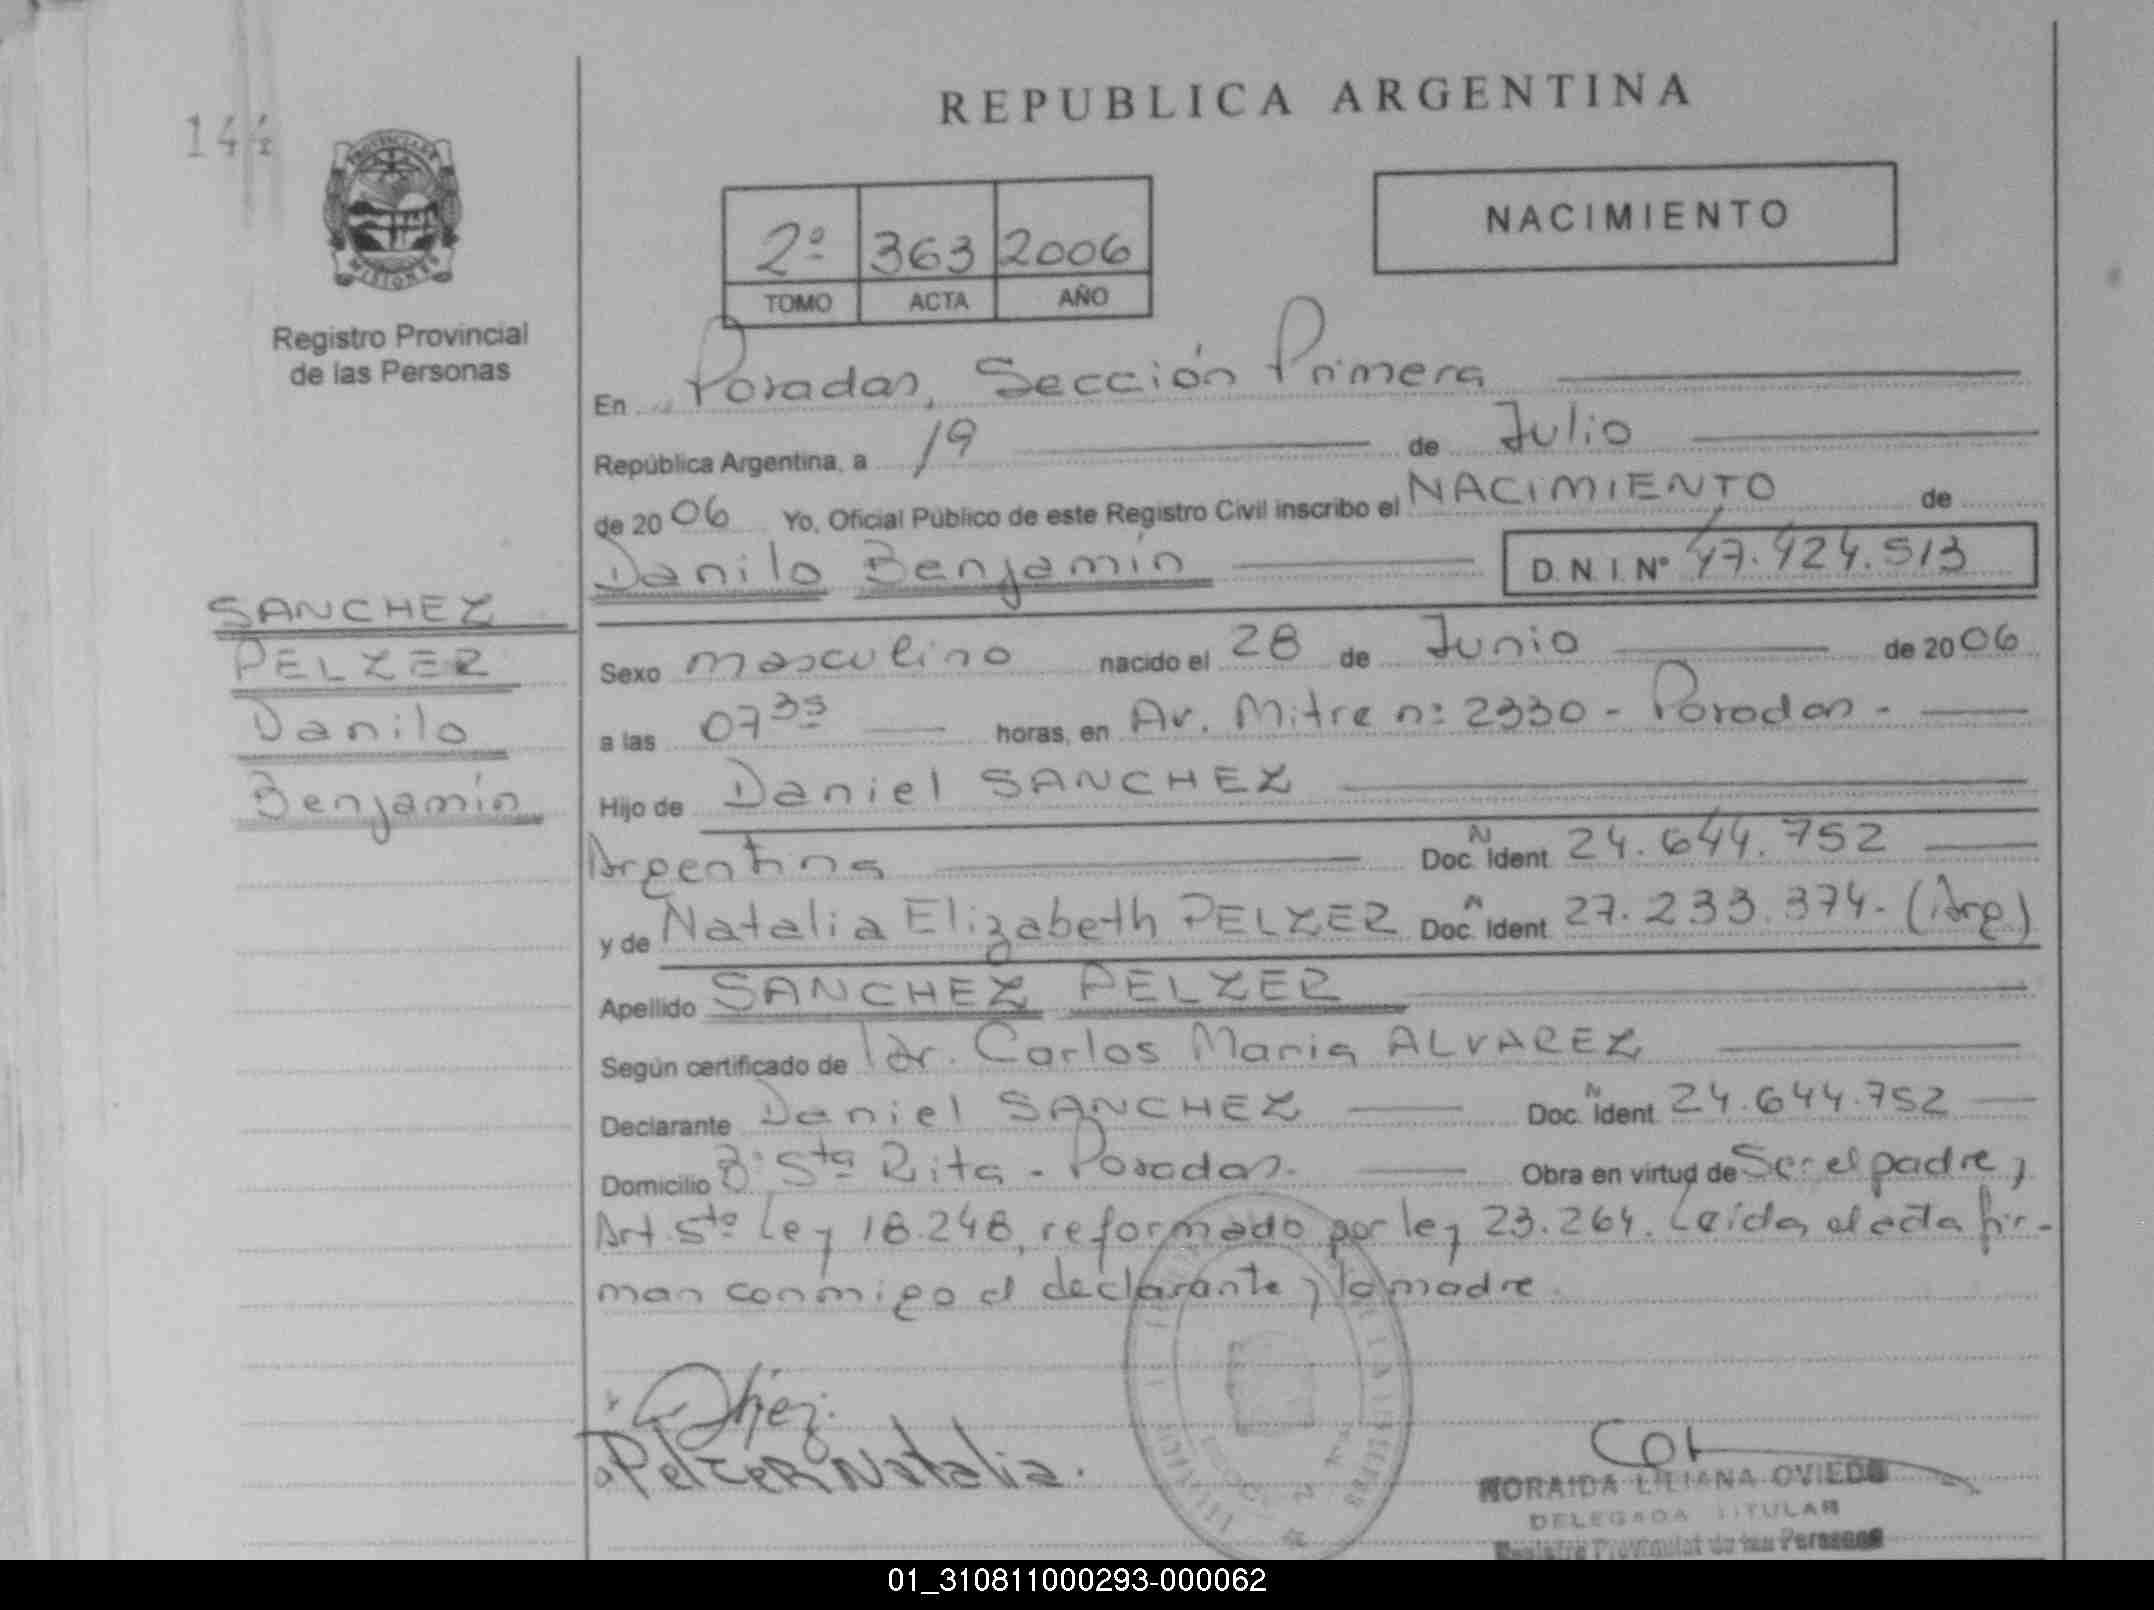 144
REPUBLICA ARGENTINA
NACIMIENTO
2º 363 2006
TOMO ACTA AÑO
MISIONES
Registro Provincial
de las Personas
En Posadas, Sección Primera
República Argentina, a 19 de Julio
de 2006 Yo, Oficial Público de este Registro Civil inscribo el NACIMIENTO de
Danilo Benjamín D.N.I. Nº 47.424.513
SANCHEZ
PELZER
Danilo
Benjamín
Sexo masculino nacido el 28 de Junio de 2006
a las 07 35 horas, en Av. Mitre nº 2330 - Posadas -
Hijo de Daniel SANCHEZ
Argentina Doc. N Ident 24.644.752
y de Natalia Elizabeth PELZER Doc. N Ident 27.233.374. (Arg)
Apellido SANCHEZ PELZER
Según certificado de Dr. Carlos Maria ALVAREZ
Declarante Daniel SANCHEZ Doc. N Ident 24.644.752
Domicilio Bº Sta Rita - Posadas. Obra en virtud de Ser el padre y
Art. 5to Ley 18.248, reformado por ley 23.264. Leída el acta fir-
man conmigo el declarante y la madre.
PELZER Natalia.
NORAIDA LILIANA OVIEDO
DELEGADA TITULAR
Registro Provincial de las Personas
01_310811000293-000062